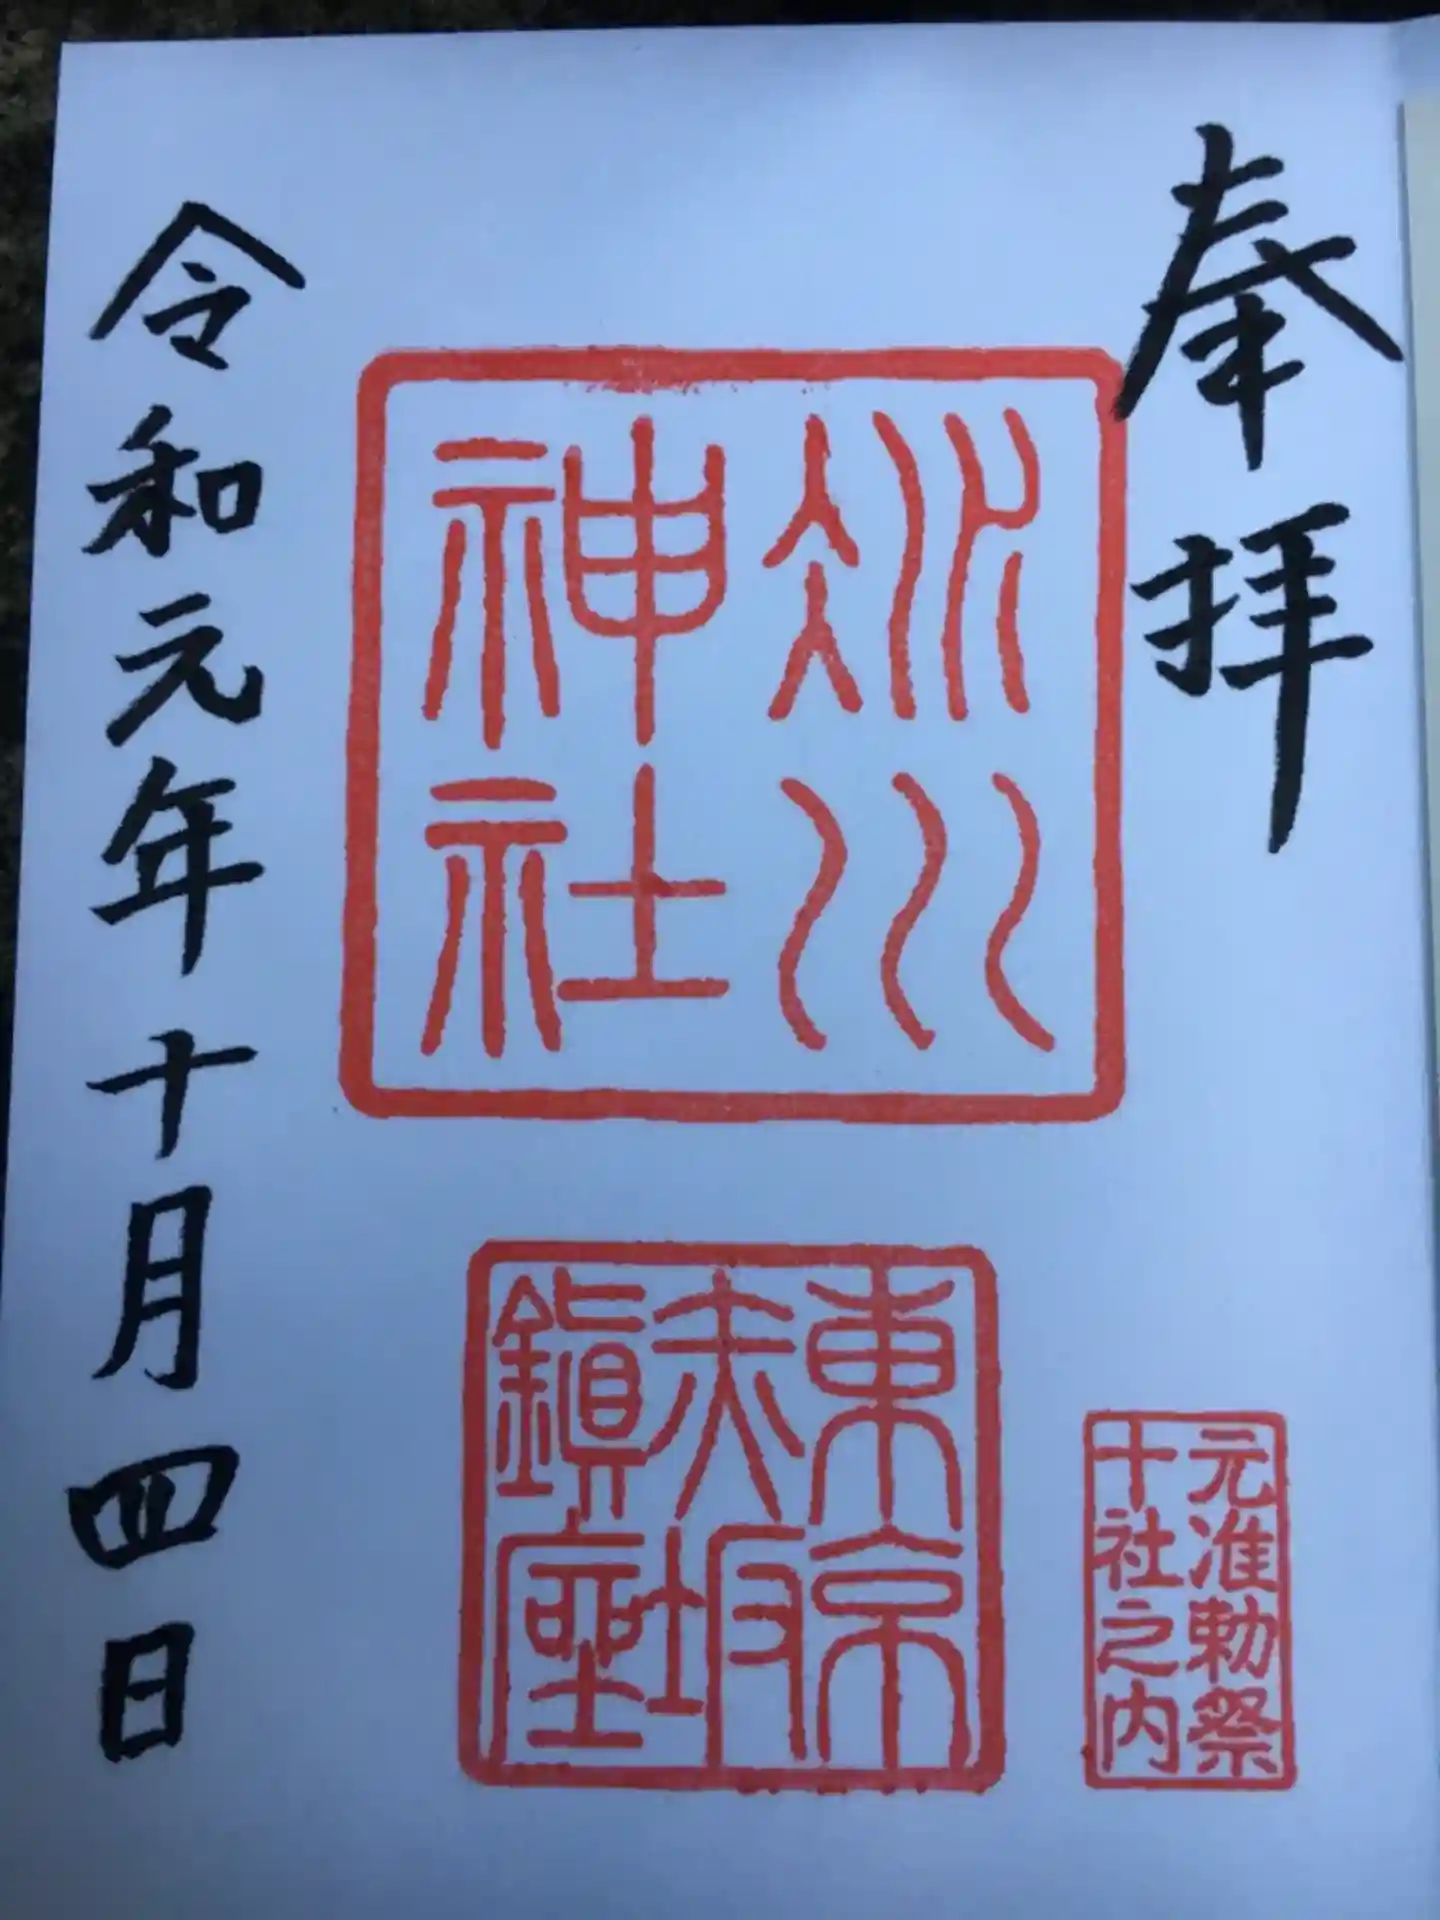 奉拝
氷川
神社
東京
赤坂
鎮座
元准勅祭
十社之内
令和元年十月四日